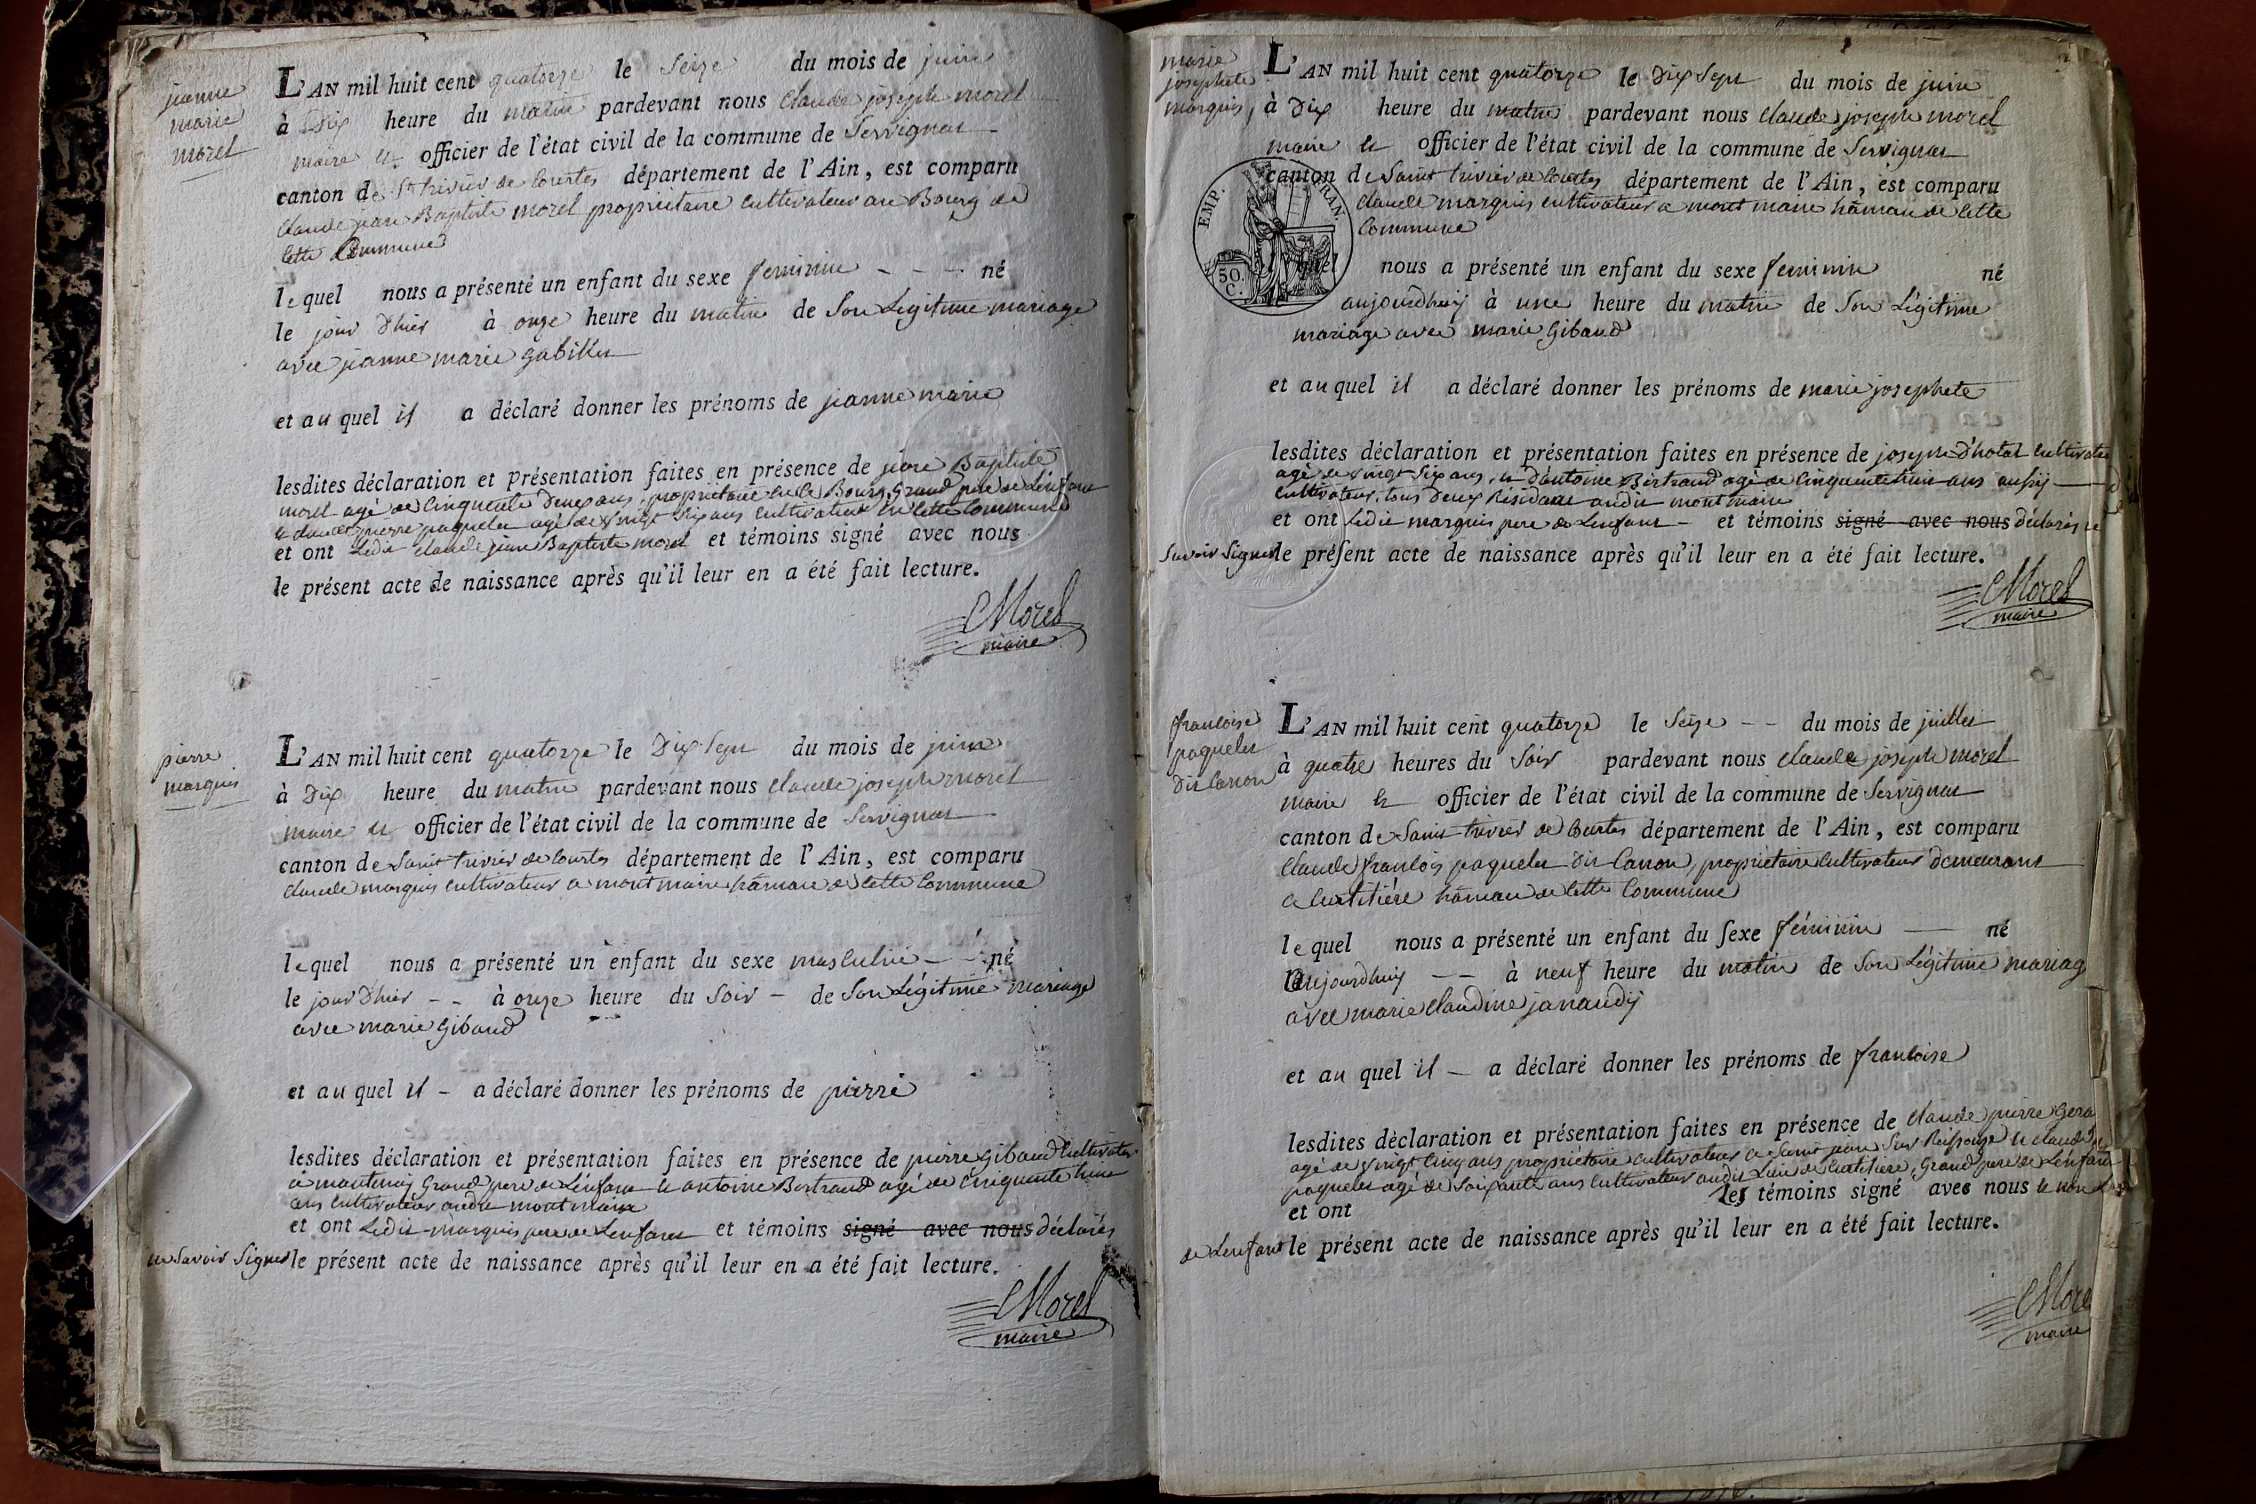 jeanne
marie
morel
L'AN mil huit cent quatorze le Seize du mois de juin
à Dix heure du matin pardevant nous Claude joseph morel
maire et officier de l'état civil de la commune de Servignat
canton de St trivier de Courtes département de l'Ain, est comparu
Claude jean Baptiste morel propriétaire cultivateur au Bourg de
cette Commune
lequel nous a présenté un enfant du sexe feminin né
le jour d'hier à onze heure du matin de Son Legitime mariage
avec jeanne marie gabillet
et auquel il a déclaré donner les prénoms de jeanne marie
lesdites déclaration et présentation faites en présence de jean Baptiste
morel agé de Cinquante Deux ans, propriétaire en le Bourg, Grand pere de L'enfant
et claude pierre paquelet agé de vingt six ans cultivateur en cette Commune
et ont Ledit claude jean Baptiste morel et témoins signé avec nous
le présent acte de naissance après qu'il leur en a été fait lecture.
CMorel
maire
pierre
marquis
L'AN mil huit cent quatorze le Dix Sept du mois de juin
à Dix heure du matin pardevant nous Claude joseph morel
maire et officier de l'état civil de la commune de Servignat
canton de Saint trivier de Courtes département de l'Ain, est comparu
claude marquis cultivateur a mont main hâmau de cette Commune
lequel nous a présenté un enfant du sexe masculin né
le jour d'hier à onze heure du Soir de Son Légitime mariage
avec marie Gibaud
et auquel il a déclaré donner les prénoms de pierre
lesdites déclaration et présentation faites en présence de pierre Gibaud Cultivateur
a mantenay Grand pere de L'enfant et antoine Bertrand agé de Cinquante trois
ans cultivateur audit mont main
et ont Ledit marquis pere de L'enfant et témoins signé avec nous déclarés
ne Savoir Signer le présent acte de naissance après qu'il leur en a été fait lecture.
CMorel
maire
marie
josephete
marquis
L'AN mil huit cent quatorze le Dix Sept du mois de juin
à Dix heure du matin pardevant nous Claude joseph morel
maire et officier de l'état civil de la commune de Servignat
canton de Saint trivier de Courtes département de l'Ain, est comparu
claude marquis cultivateur a mont main hâmau de cette
Commune
EMP. FRAN.
50.
C.
lequel nous a présenté un enfant du sexe feminin né
aujourdhuij à une heure du matin de Son Légitime
mariage avec marie Gibaud
et auquel il a déclaré donner les prénoms de marie josephete
lesdites déclaration et présentation faites en présence de joseph D'hotal Cultivateur
agé de vingt Six ans, et D'antoine Bertrand agé de Cinquante trois ans aussij
cultivateur, tous Deux Résidant audit mont main
et ont Ledit marquis pere de L'enfant et témoins signé avec nous déclarés ne
Savoir Signer le présent acte de naissance après qu'il leur en a été fait lecture.
CMorel
maire
francoise
paquelet
Dit Canon
L'AN mil huit cent quatorze le Seize du mois de juillet
à quatre heures du Soir pardevant nous Claude joseph morel
maire et officier de l'état civil de la commune de Servignat
canton de Saint trivier de Courtes département de l'Ain, est comparu
Claude francois paquelet Dit Canon, propriétaire Cultivateur demeurant
a Curtitière hâmau de cette Commune
lequel nous a présenté un enfant du sexe féminin né
aujourdhuij à neuf heure du matin de Son Légitime mariag
avec marie claudine janaudij
et auquel il a déclaré donner les prénoms de francoise
lesdites déclaration et présentation faites en présence de Claude pierre Gera
agé de vingt Cinq ans propriétaire cultivateur a Saint jean Sur Reissouze et claude
paquelet agé de Soixante ans Cultivateur audit Lieu de Curtitière, Grand pere de L'enfant
et ont Les témoins signé avec nous et non
de L'enfant le présent acte de naissance après qu'il leur en a été fait lecture.
CMore
maire